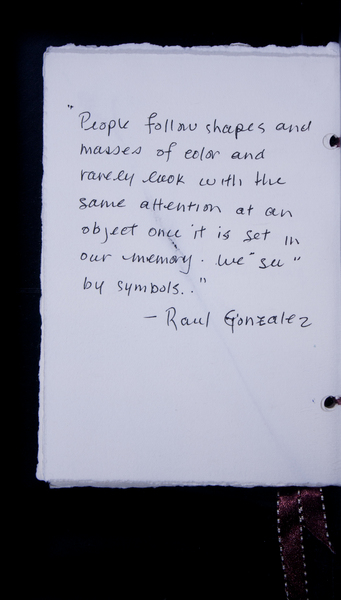 "People follow shapes and
masses of color and
rarely look with the
same attention at an
object once it is set in
our memory. We "see"
by symbols.."
— Raul Gonzalez